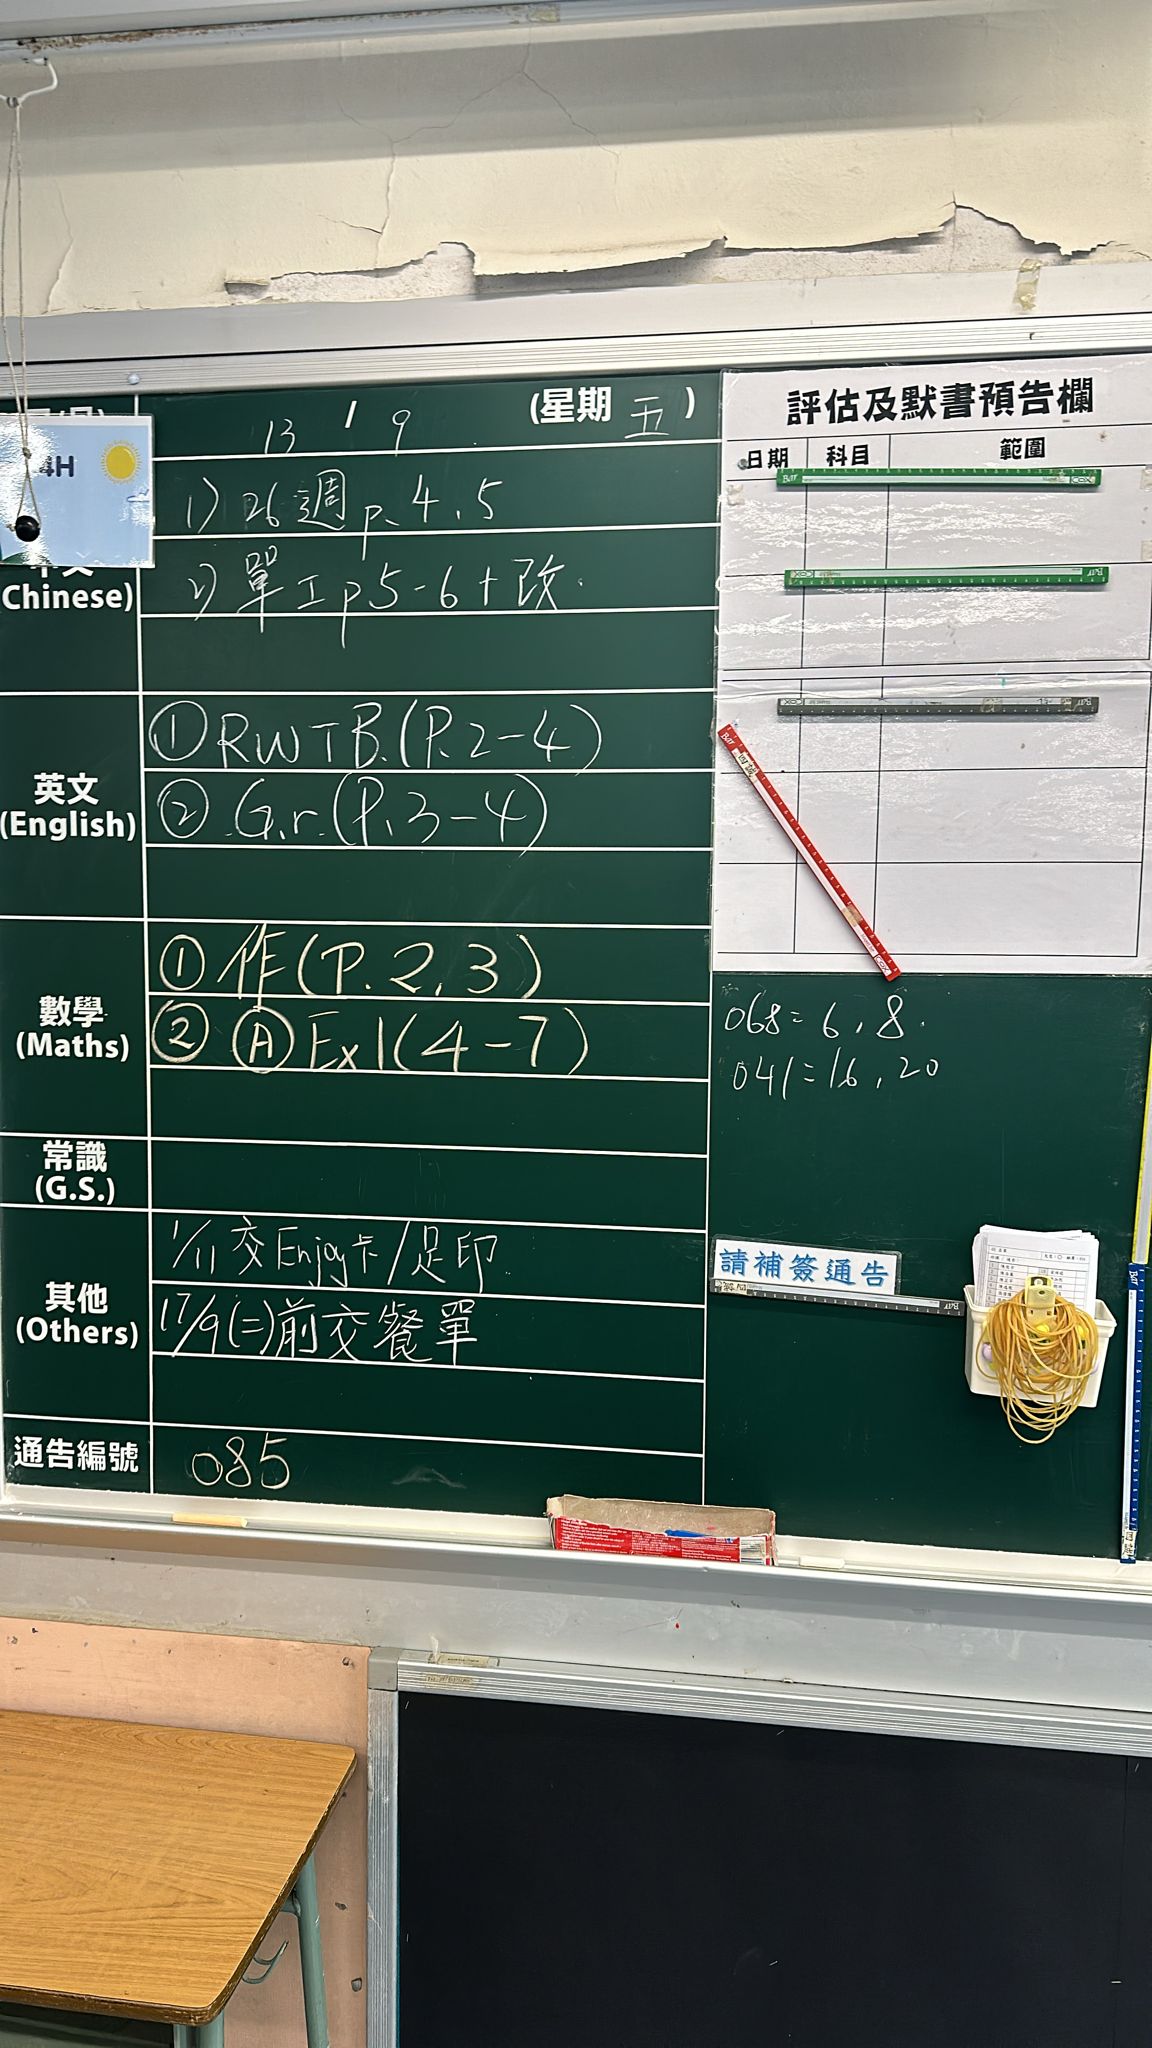 4H
13 / 9 (星期 五)
1) 26週 p. 4、5
(Chinese)
2) 單工 p5-6+改
英文
(English)
① RWTB. (P.2-4)
② Gr. (P.3-4)
數學
(Maths)
① 作 (P. 2, 3)
② Ⓐ Ex1 (4-7)
常識
(G.S.)
其他
(Others)
1/11 交 Enjoy卡/足印
17/9(二)前交餐單
通告編號
085
評估及默書預告欄
日期 科目 範圍
068=6, 8
041=16, 20
請補簽通告